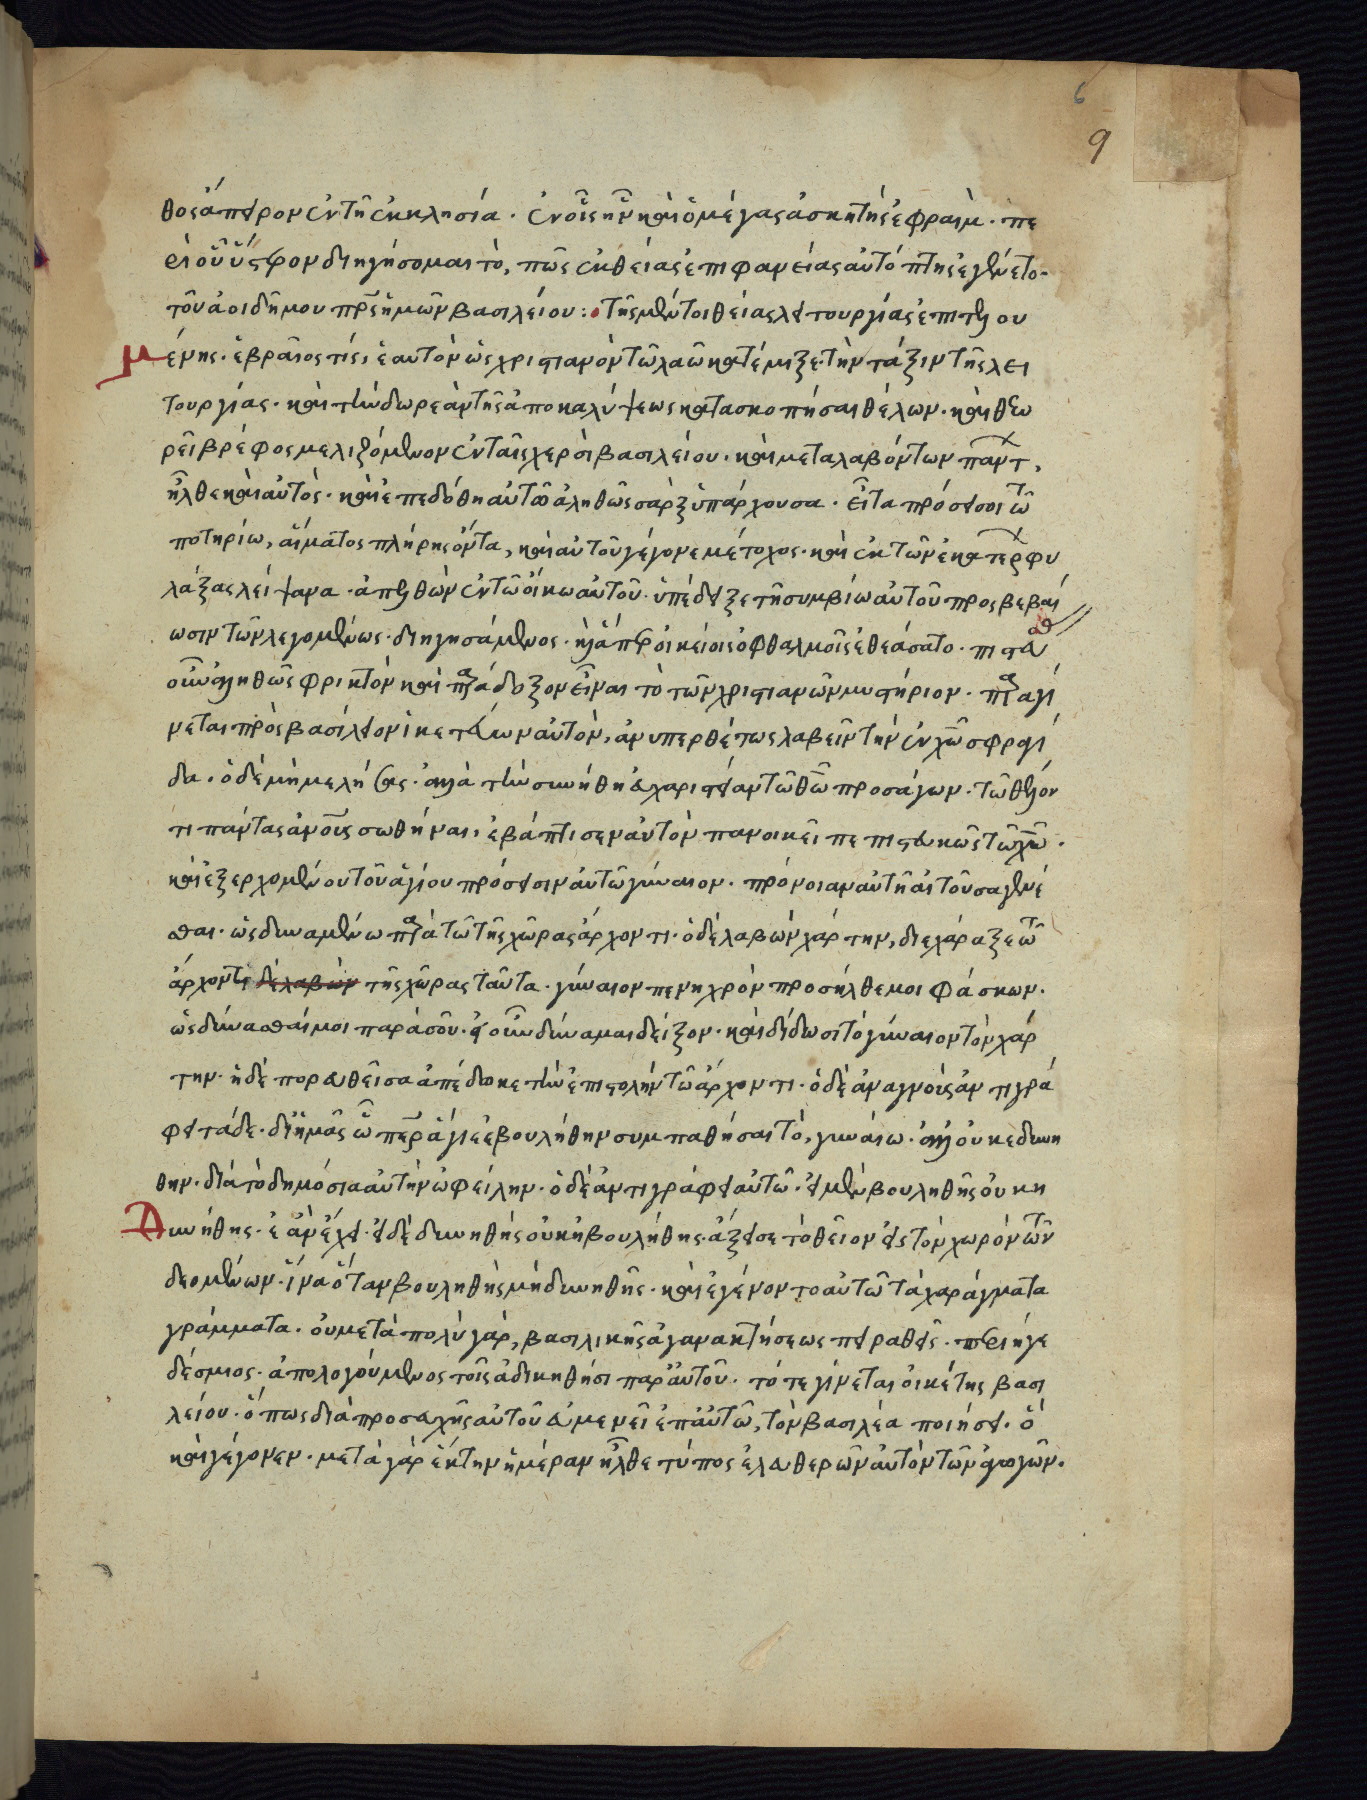 6
9
θος ἄπειρον ἐν τῆ ἐκκλησία. ἐν οἷς ἦν καὶ ὁ μέγας ἀσκητὴς ἐφραὶμ. πε
ρὶ οὗ ὕστερον διηγήσομαι τὸ, πῶς ἐκ θείας ἐπιφανείας αὐτόπτης ἐγένετο
τοῦ ἀοιδήμου πρς ἡμῶν βασιλείου: τῆς μέντοι θείας λειτουργίας ἐπιτελου
μένης. ἑβραῖος τίς, ἑαυτὸν ὡς χριστιανὸν τῶ λαῶ κατέμιξε. τὴν τάξιν τῆς λει
τουργίας. καὶ τὴν δωρεὰν τῆς ἀποκαλύψεως κατασκοπῆσαι θέλων. καὶ θεω
ρεῖ βρέφος μελιζόμενον ἐν ταῖς χερσὶ βασιλείου. καὶ μεταλαβόντων παντ,
ἦλθε καὶ αὐτὸς. καὶ ἐπεδόθη αὐτῶ ἀληθῶς σὰρξ ὑπάρχουσα. εἶτα πρόσεισι τῶ
ποτηρίω, αἵματος πλήρης ὄντα, καὶ αὐτοῦ γέγονε μέτοχος. καὶ ἐκ τῶν ἑκατερ φυ
λάξας λείψανα. ἀπελθὼν ἐν τῶ οἴκω αὐτοῦ. ὑπέδειξε τῆ συμβίω αὐτοῦ προς βεβαί
ωσιν τῶν λεγομένως. διηγησάμενος. καὶ ἅπερ οἰκείοις ὀφθαλμοῖς ἐθεάσατο. πιστευθ
οὖν ἀληθῶς φρικτὸν καὶ παράδοξον εἶναι τὸ τῶν χριστιανῶν μυστήριον. παραγί
νεται πρὸς βασίλειον ἱκετεύων αὐτὸν, ἀνυπερθέτως λαβεῖν τὴν ἐν χω σφραγί
δα. ὁ δὲ μὴ μελήσας. ἀλλὰ τὴν συνήθη εὐχαριστείαν τῶ θω προσάγων. τῶ θέλον
τι πάντας ἀνους σωθῆναι, ἐβάπτισεν αὐτὸν πανοικεῖ πεπιστευκὼς τῶ χω.
καὶ ἐξερχομένου τοῦ ἁγίου πρόσεισιν αὐτῶ γύναιον. πρόνοιαν αὐτῆ αἰτοῦσα γενέ
σθαι. ὡς δυναμένω παρὰ τῶ τῆς χώρας ἄρχοντι. ὁ δὲ λαβὼν χάρτην, διεχάραξε τῶ
ἄρχοντι δὲ λαβὼν τῆς χώρας ταῦτα. γύναιον πενηχρὸν προσῆλθε μοι φάσκων.
ὡς δύνασθαί μοι παρὰ σοῦ. εἰ οὖν δύναμαι δεῖξον. καὶ δίδωσι τὸ γύναιον τὸν χάρ
την. ἡ δὲ πορευθεῖσα ἀπέδωκε τὴν ἐπιστολὴν τῶ ἄρχοντι. ὁ δὲ ἀναγνοὺς ἀντιγρά
φει τάδε. δι ἡμᾶς ὦ περ ἅγιε ἐβουλήθην συμπαθῆσαι τὸ, γυναίω. ἀλλ οὐκ εδυνη
θην. διὰ τὸ δημόσια αὐτὴν ὠφείλην. ὁ δὲ ἀντιγράφει αὐτῶ. εἰ μὲν βουληθῆς οὐκ η
Δυνήθης. ἐὰν ἔχει. εἰ δὲ δυνηθῆς οὐκ ἠβουλήθης. ἄξει σε τὸ θεῖον εἰς τὸν χωρὸν τῶν
δεομένων. ἵνα ὅταν βουληθῆς μὴ δυνηθῆς. καὶ ἐγένοντο αὐτῶ τὰ χαράγματα
γράμματα. οὐ μετὰ πολὺ γὰρ, βασιλικῆς ἀγανακτήσεως πειραθεὶς. περιῆγε
δέσμιος. ἀπολογούμενος τοῖς ἀδικηθῆσι παρ αὐτοῦ. τότε γίνεται οἰκέτης βασι
λείου. ὅπως διὰ προσευχῆς αὐτοῦ εὐμενεῖ ἐπ αὐτῶ, τὸν βασιλέα ποιήσει. ὃ
καὶ γέγονεν. μετὰ γὰρ ἕκτην ἡμέραν ἦλθε τύπος ἐλευθερῶν αὐτὸν τῶν ἀγωγῶν.